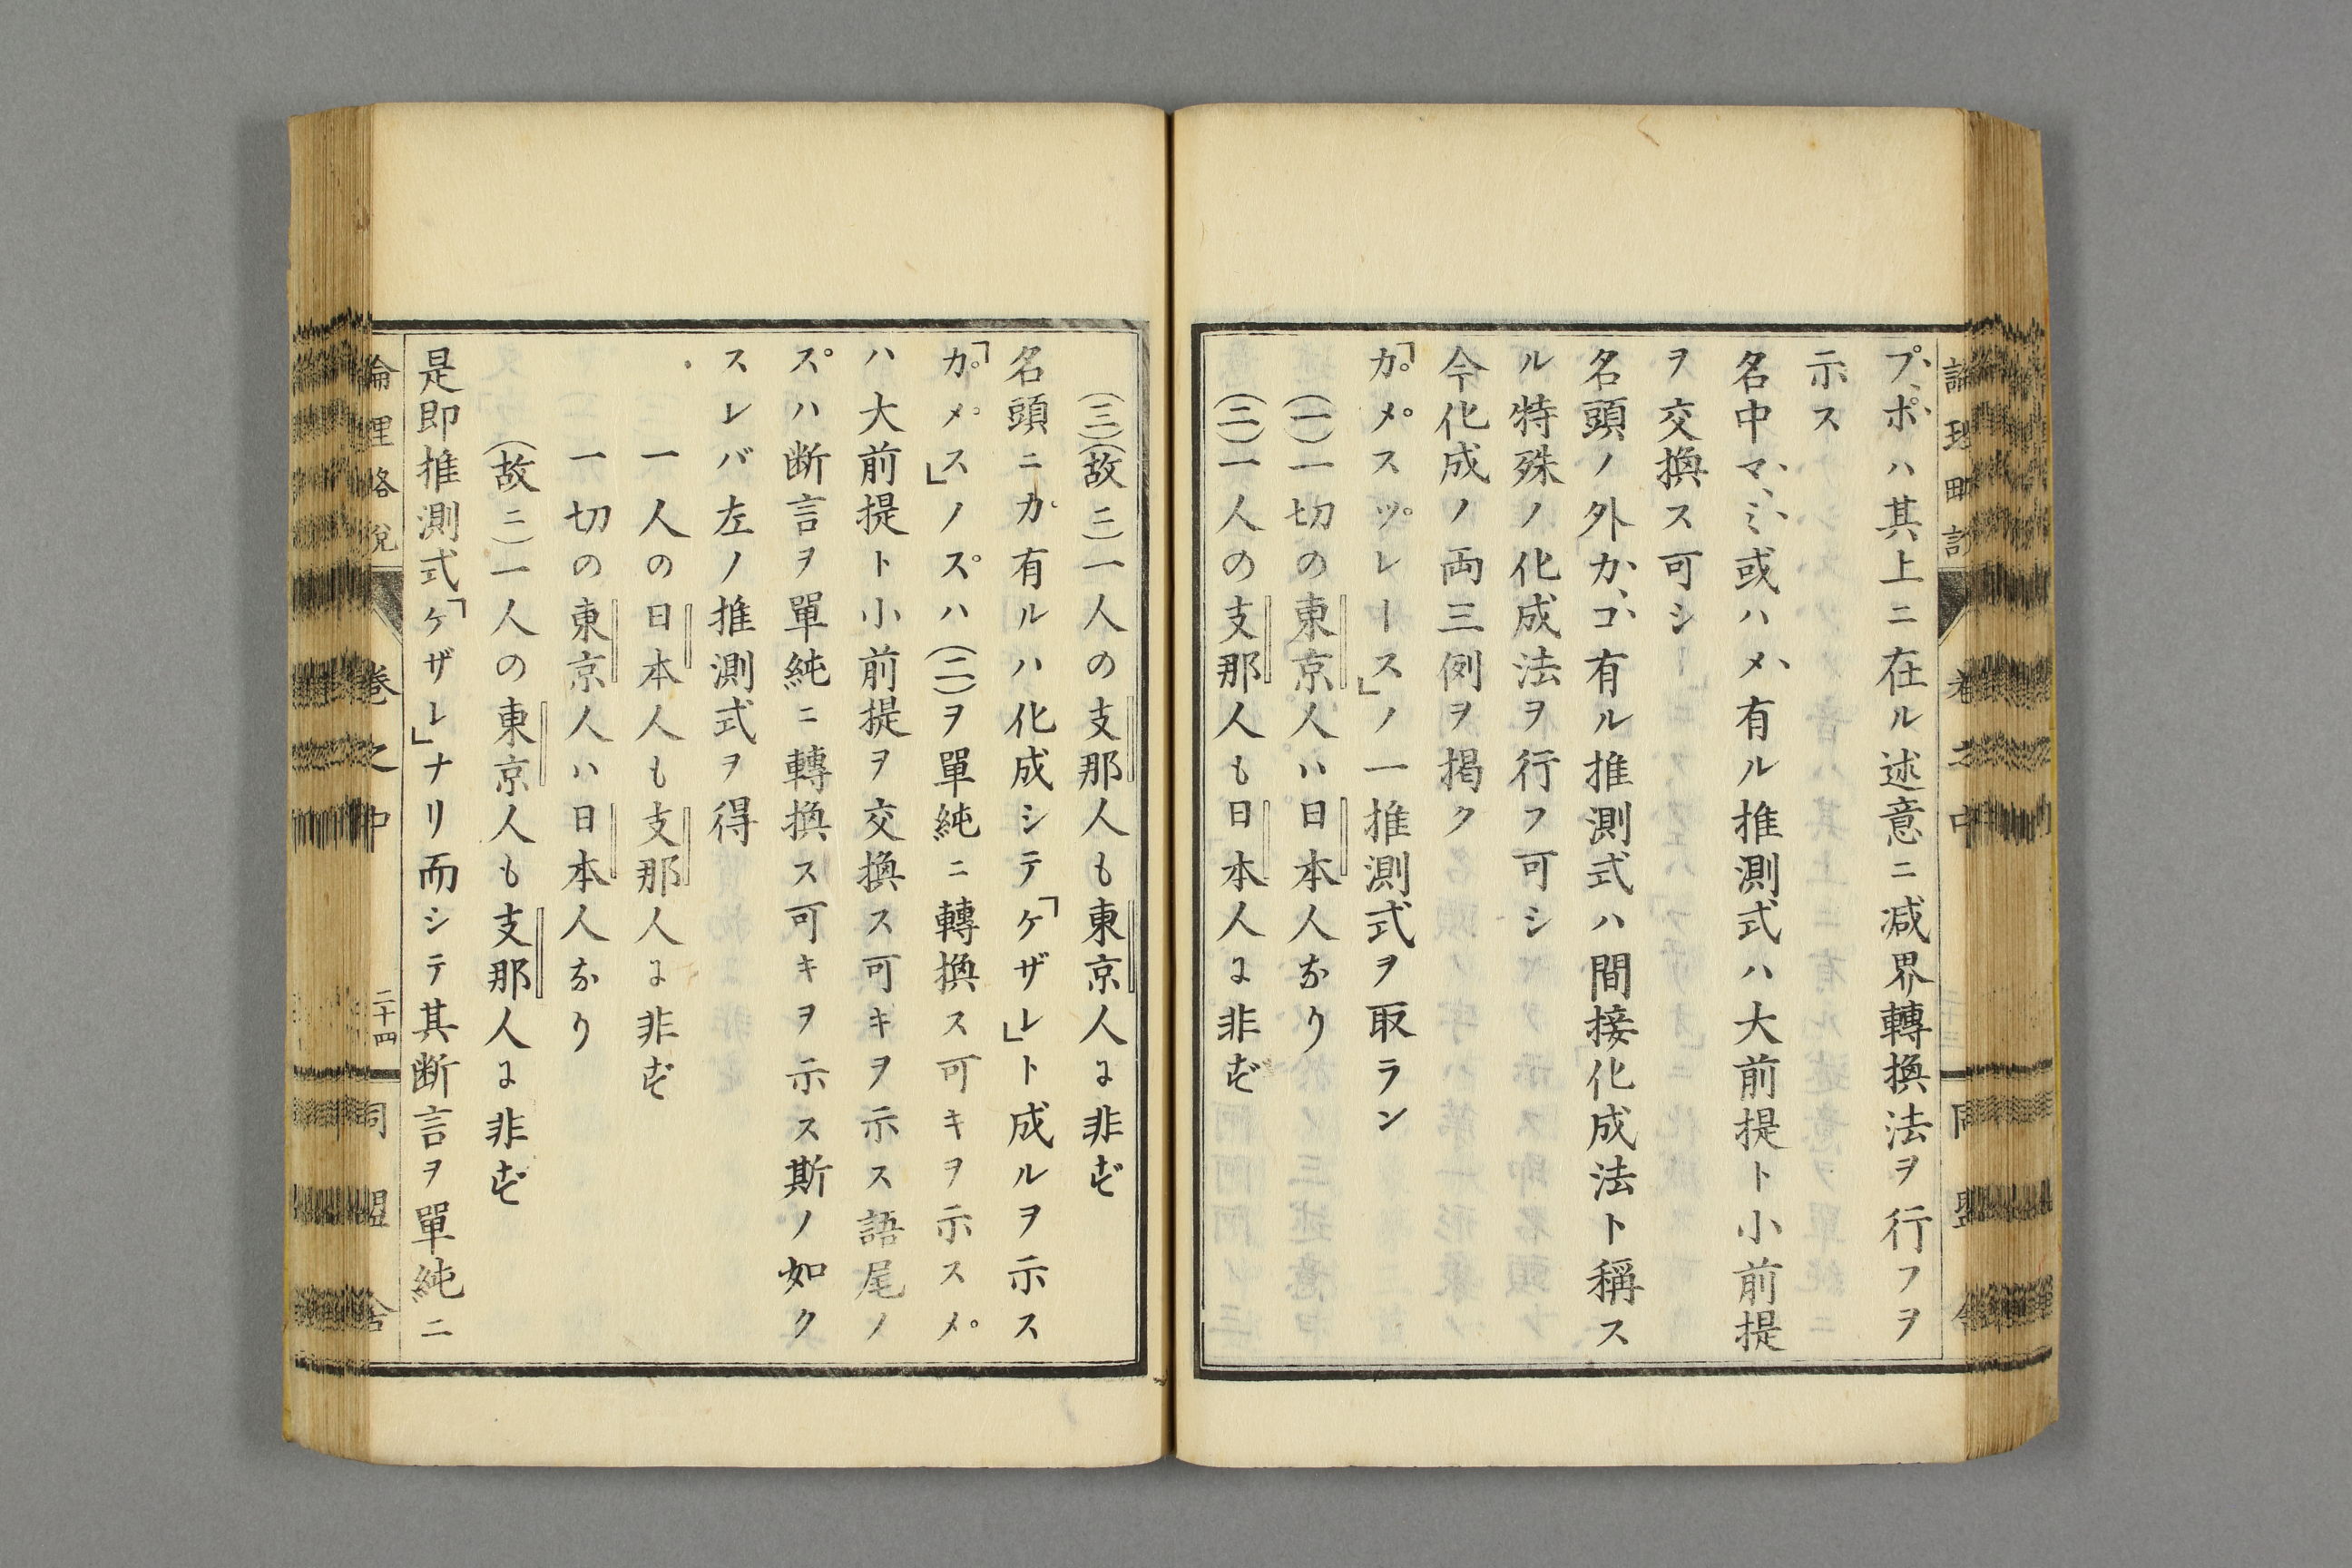 プ、ポ、ハ其上ニ在ル述意ニ减界轉換法ヲ行フヲ
示ス
名中マ、ミ、或ハメ、有ル推測式ハ大前提ト小前提
ヲ交換ス可シ
名頭ノ外カ、コ、有ル推測式ハ間接化成法ト稱ス
ル特殊ノ化成法ヲ行フ可シ
今化成ノ両三例ヲ掲ク
「カ゚メ゚スツ゚レース」ノ一推測式ヲ取ラン
(一)一切の東京人ハ日本人なり
(二)一人の支那人も日本人に非ず
(三)(故ニ)一人の支那人も東京人に非ず
名頭ニカ゚有ルハ化成シテ「ケザレ」ト成ルヲ示ス
「カ゚メ゚ス」ノス゚ハ(二)ヲ單純ニ轉換ス可キヲ示スメ゚
ハ大前提ト小前提ヲ交換ス可キヲ示ス語尾ノ
ス゚ハ断言ヲ單純ニ轉換ス可キヲ示ス斯ノ如ク
スレバ左ノ推測式ヲ得
一人の日本人も支那人に非ず
一切の東京人ハ日本人なり
(故ニ)一人の東京人も支那人に非ず
是即推測式「ケザレ」ナリ而シテ其断言ヲ單純ニ
論理略説 卷之中 二十四 同盟舎